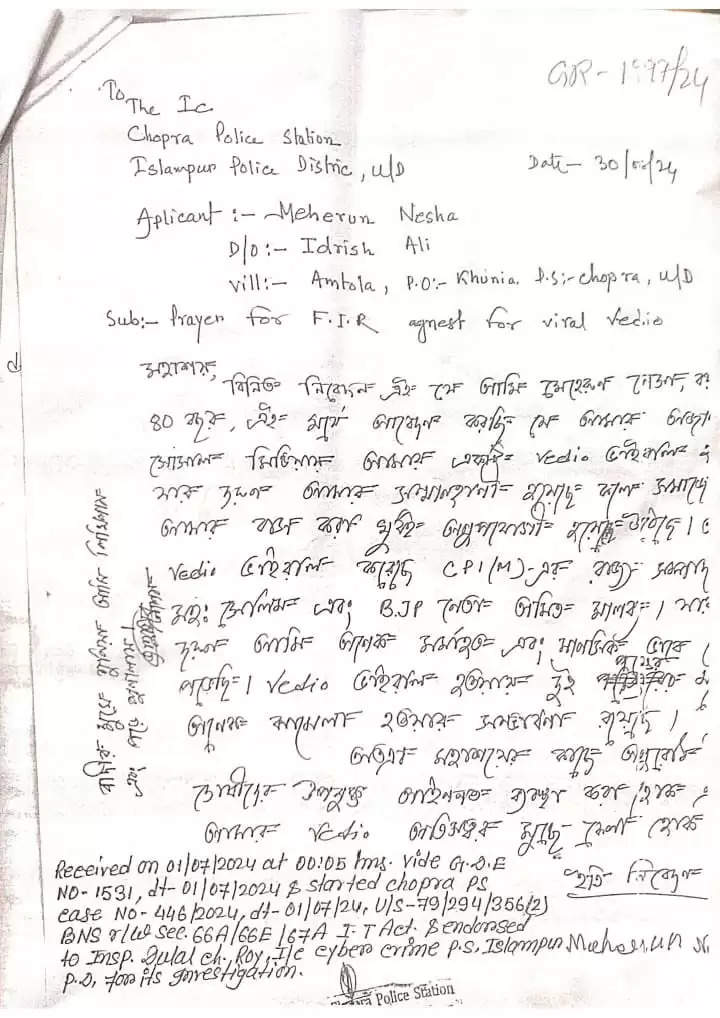 GR - 1 97/24
To
The Ic
Chopra Police Station
Islampur Police Distric, u/D
Date- 30/06/24
Aplicant :- Meherun Nesha
D/o:- Idrish Ali
vill:- Amtola, P.O:- Khunia. P.S:- chopra, u/D
Sub:- Prayer for F.I.R agnest for viral Vedio
মহাশয়,
বিনিত নিবেদন এই যে আমি মেহেরুন নেসা,
৪০ বছর, এই মর্মে আবেদন করছি যে আমার অজা
সোসাল মিডিয়ায় আমার একটি vedio ভাইরাল
যার ফলে আমার সম্মানহানী হয়েছে ফলে সমাজে
আমার বাস করা খুবই অনুপযোগী হয়ে উঠেছে।
vedio ভাইরাল করেছে CPI(M)-এর রাজ্য সম্পাদ
মহঃ সেলিম এবং BJP নেতা অমিত মালব্য।
ফলে আমি অনেক মর্মাহত এবং মানসিক ভাবে
পড়েছি। Vedio ভাইরাল হওয়ায় দুই পক্ষের
অনেক ঝামেলা হওয়ার সম্ভাবনা রয়েছে।
অতএব মহাশয়ের কাছে অনুরোধ
দোষীদের উপযুক্ত আইনগত ব্যবস্থা করা হোক
আমার vedio অতিসত্বর মুছে ফেলা হোক
ইতি নিবেদন
Meherun N
বাদির মুখে শুনিয়া আমি লিখিলাম
এবং পড়ে শুনালাম
Received on 01/07/2024 at 00:05 hrs. vide G.D.E
NO- 1531, dt- 01/07/2024 & started chopra PS
case NO- 446/2024, dt- 01/07/24, U/S- 79/294/356(2)
BNS r/w sec. 66A/66E/67A I.T Act. & endorsed
to Insp. Dulal ch. Roy, I/c cyber crime P.S, Islampur
P.D, for its investigation.
Police Station